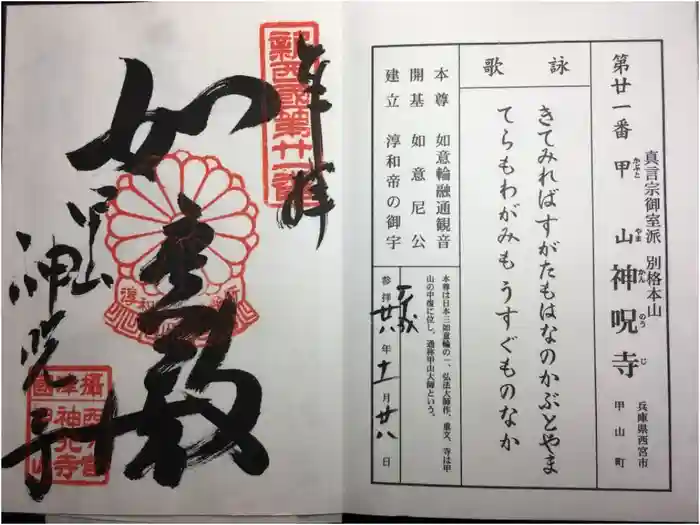 第廿一番 甲山 神呪寺
かぶと やま かん のう じ
真言宗御室派 別格本山
兵庫県西宮市
甲山町
詠歌
きてみればすがたもはなのかぶとやま
てらもわがみもうすぐものなか
本尊 如意輪融通観音
開基 如意尼公
建立 淳和帝の御宇
本尊は日本三如意輪の一、弘法大師作、重文、寺は甲
山の中腹に位し。通称甲山大師という。
平成
参拝廿八年十一月廿八日
奉拝
新西國第廿一番
如意殿
甲山
神呪寺